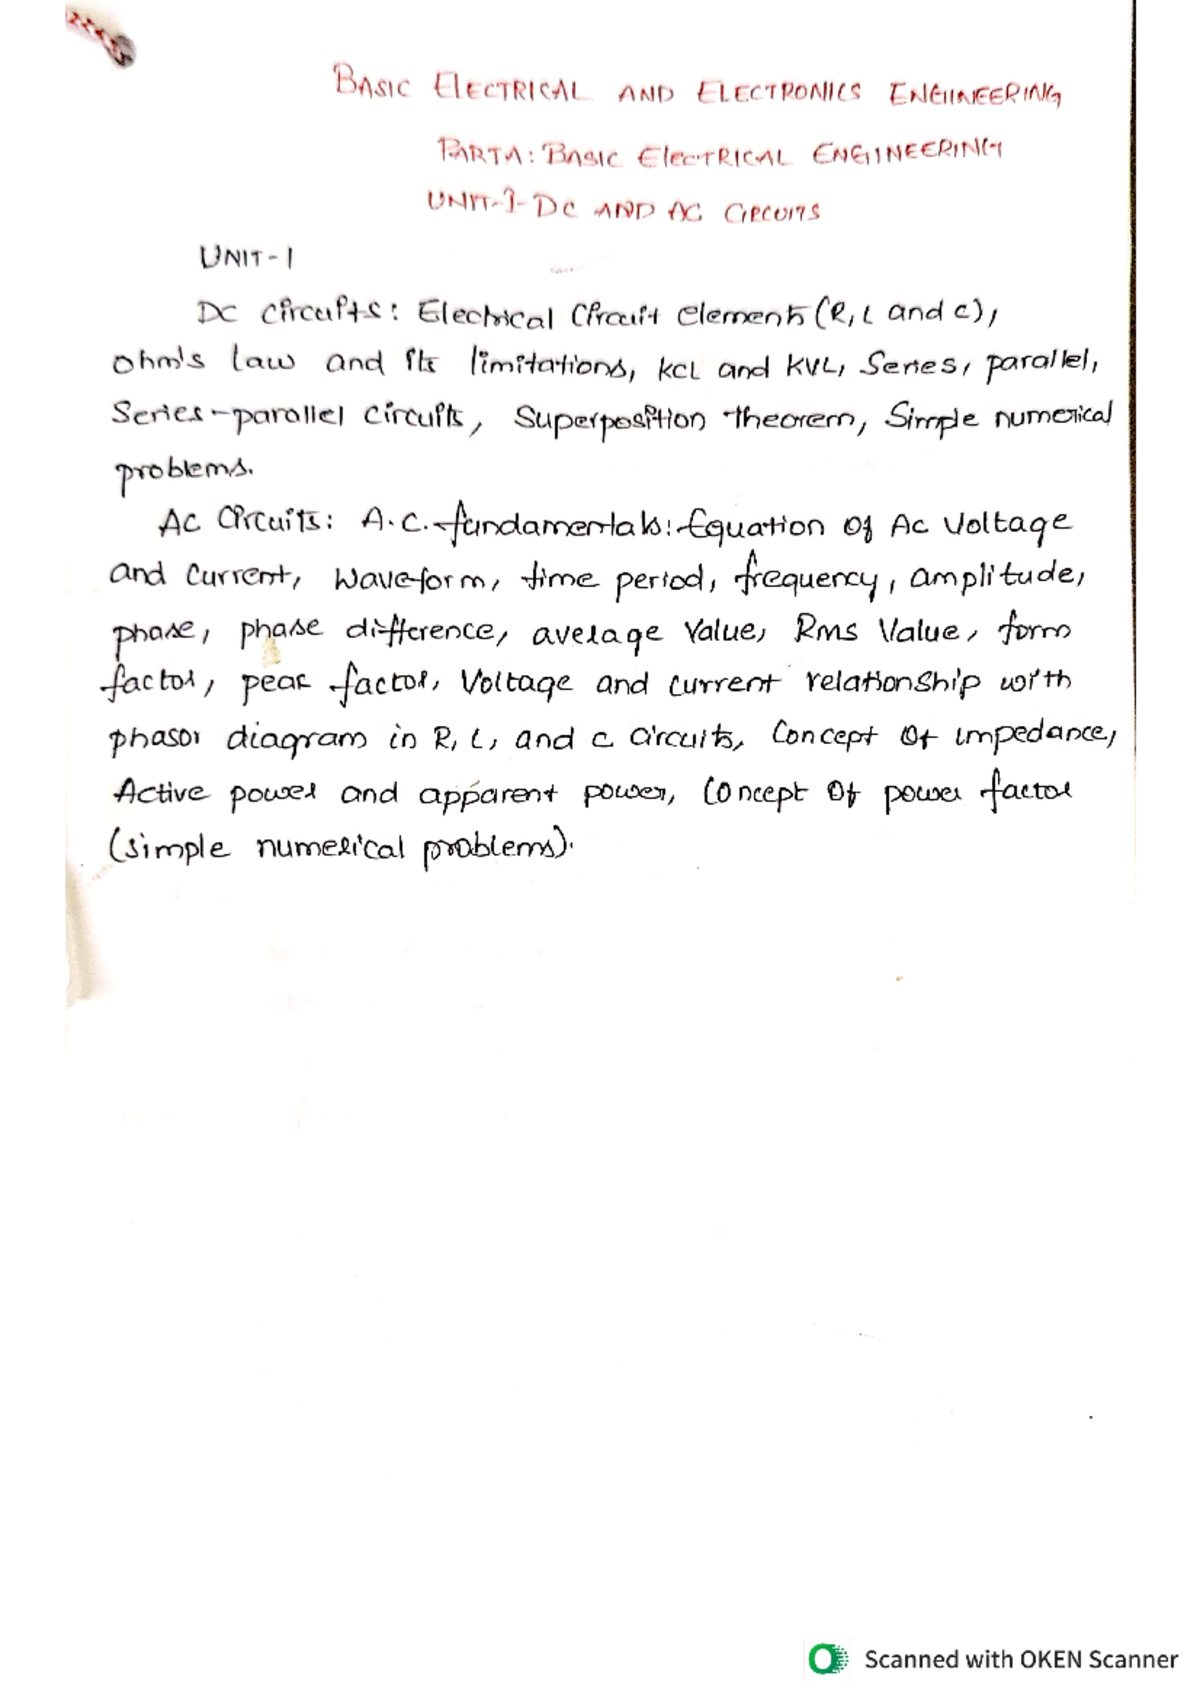 BASIC ELECTRICAL AND ELECTRONICS ENGINEERING
PART A: BASIC ELECTRICAL ENGINEERING
UNIT-I- DC AND AC CIRCUITS
UNIT-1
DC circuits: Electrical Circuit elements (R, L and C),
ohm's law and its limitations, KCL and KVL, Series, parallel,
Series-parallel circuits, Superposition theorem, Simple numerical
problems.
AC Circuits: A.C. fundamentals:-Equation of AC Voltage
and current, waveform, time period, frequency, amplitude,
phase, phase difference, average value, Rms value, form
factor, peak factor, Voltage and current relationship with
phasor diagram in R, L, and C circuits, Concept of impedance,
Active power and apparent power, Concept of power factor
(simple numerical problems).
Scanned with OKEN Scanner